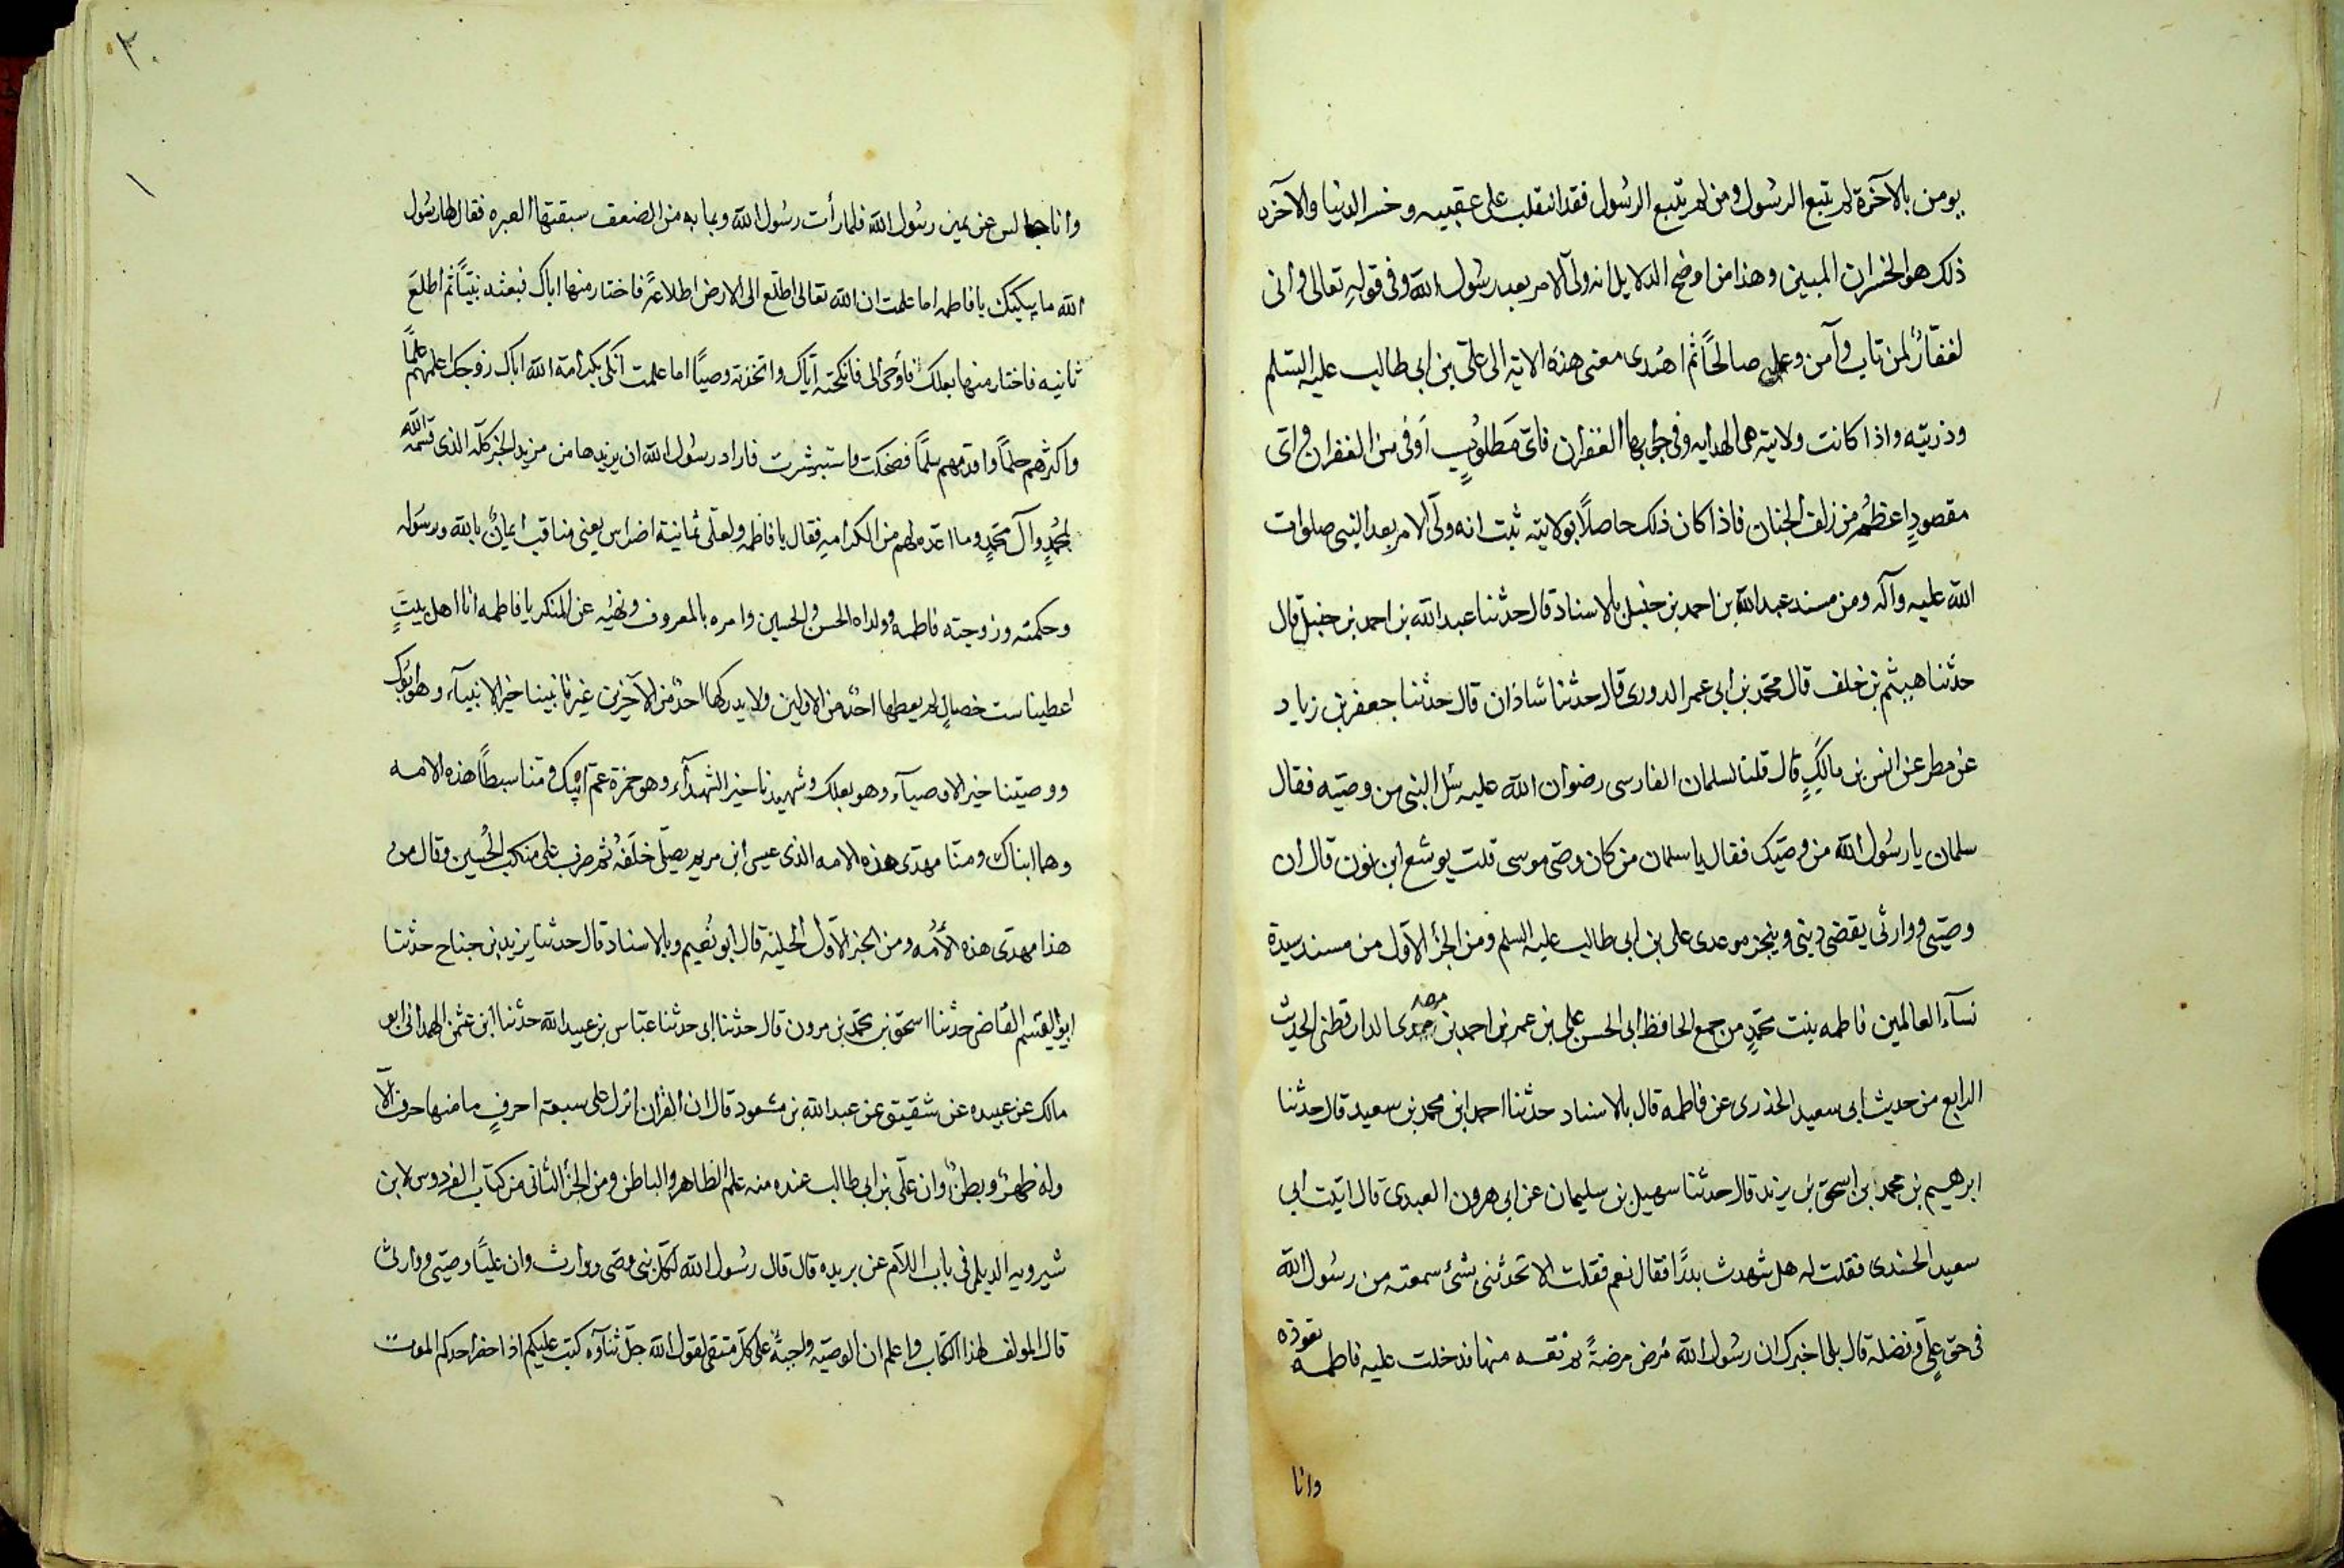 يومن بالآخرة لم يتبع الرسول ومن لم يتبع الرسول فقد انقلب على عقبيه وخسر الدنيا والآخره
ذلك هو الخسران المبين وهذا من اوضح الدلايل انه ولى الامر بعد رسول الله وفى قوله تعالى وانى
لغفار لمن تاب وآمن وعمل صالحاً ثم اهتدى معنى هذه الاية الى على بن ابى طالب عليه السلم
وذريته واذا كانت ولايته هى الهدايه وفى جوابها الغفران فاى مطلوبٍ اوفى من الغفران واى
مقصودٍ اعظم من زلف الجنان فاذا كان ذلك حاصلاً بولايته ثبت انه ولى الامر بعد النبى صلوات
الله عليه وآله ومن مسند عبدالله بن احمد بن حنبل بالاسناد قال حدثنا عبدالله بن احمد بن حنبل قال
حدثنا هيثم بن خلف قال محمد بن ابى عمر الدورى قال حدثنا شاذان قال حدثنا جعفر بن زياد
عن مطر عن انس بن مالكٍ قال قلنا لسلمان الفارسى رضوان الله عليه سل النبى من وصيه فقال
سلمان يا رسول الله من وصيك فقال يا سلمان من كان وصى موسى قلت يوشع ابن نون قال ان
وصيى ووارثى يقضى دينى وينجز موعدى على بن ابى طالب عليه السلم ومن الجزء الاول من مسند سيدة
نسآء العالمين فاطمه بنت محمدٍ من جمع الحافظ ابى الحسن على بن عمر بن احمد بن مهدى الدارقطنى الحديث
الرابع من حديث ابى سعيد الخدرى عن فاطمه قال بالاسناد حدثنا احمد ابن محمد بن سعيد قال حدثنا
ابرهيم بن محمد ابن اسحق بن يزيد قال حدثنا سهيل بن سليمان عن ابى هرون العبدى قال اتيت ابى
سعيد الخدرى فقلت له هل شهدت بدرًا فقال نعم فقلت الا تحدثنى بشئ سمعته من رسول الله
فى حق علىٍ وفضله قال بلى اخبرك ان رسول الله مرض مرضةً نقه منها فدخلت عليه فاطمه تعوده
وانا
٣٠
وانا جالس عن يمين رسول الله فلما رأت رسول الله وما به من الضعف سبقتها العبره فقال لها رسول
الله ما يبكيك يا فاطمه اما علمت ان الله تعالى اطلع الى الارض اطلاعةً فاختار منها اباك فبعثه نبيّاً ثم اطلع
ثانيه فاختار منها بعلك فأوحى الى فانكحته اياك واتخذته وصيّاً اما علمت انك بكرامة الله اباك زوجك اعلمهم علماً
واكثرهم حلماً واقدمهم سلماً فضحكت واستبشرت فاراد رسول الله ان يزيدها من مزيد الخير كله الذى قسمه الله
لمحمدٍ وآل محمدٍ وما اعده لهم من الكرامه فقال يا فاطمه ولعلى ثمانية اضراس يعنى مناقب ايمانٌ بالله ورسوله
وحكمته وزوجته فاطمه وولداه الحسن والحسين وامره بالمعروف ونهيه عن المنكر يا فاطمه انا اهل بيتٍ
اعطينا ست خصالٍ لم يعطها احدٌ من الاولين ولا يدركها احدٌ من الآخرين غيرنا نبينا خير الانبيآء وهو ابوك
ووصينا خير الاوصيآء وهو بعلك وشهيدنا خير الشهدآء وهو حمزة عم ابيك ومنا سبطا هذه الامه
وهما ابناك ومنا مهدى هذه الامه الذى عيسى ابن مريم يصلى خلفه ثم ضرب على منكب الحسين وقال من
هذا مهدى هذه الأمه ومن الجزء الاول الحلية قال ابو نعيم وبالاسناد قال حدثنا يزيد بن جناح حدثنا
ابو القسم القاضى حدثنا اسحق بن محمد بن مرون قال حدثنا ابى حدثنا عباس بن عبيدالله حدثنا ابن عثمن الهمدانى ابو
مالك عن عبيده عن شقيق عن عبدالله بن مسعود قال ان القرآن انزل على سبعة احرفٍ ما منها حرف الا
وله ظهرٌ وبطنٌ وان على بن ابى طالب عنده منه علم الظاهر والباطن ومن الجزء الثانى من كتاب الفردوس لابن
شيرويه الديلمى فى باب اللام عن بريده قال قال رسول الله لكل نبى وصى ووارث وان عليّاً وصيى ووارثى
قال المولف لهذا الكتاب واعلم ان الوصيه واجبةٌ على كل متقى لقول الله جل ثناؤه كتب عليكم اذا حضر احدكم الموت